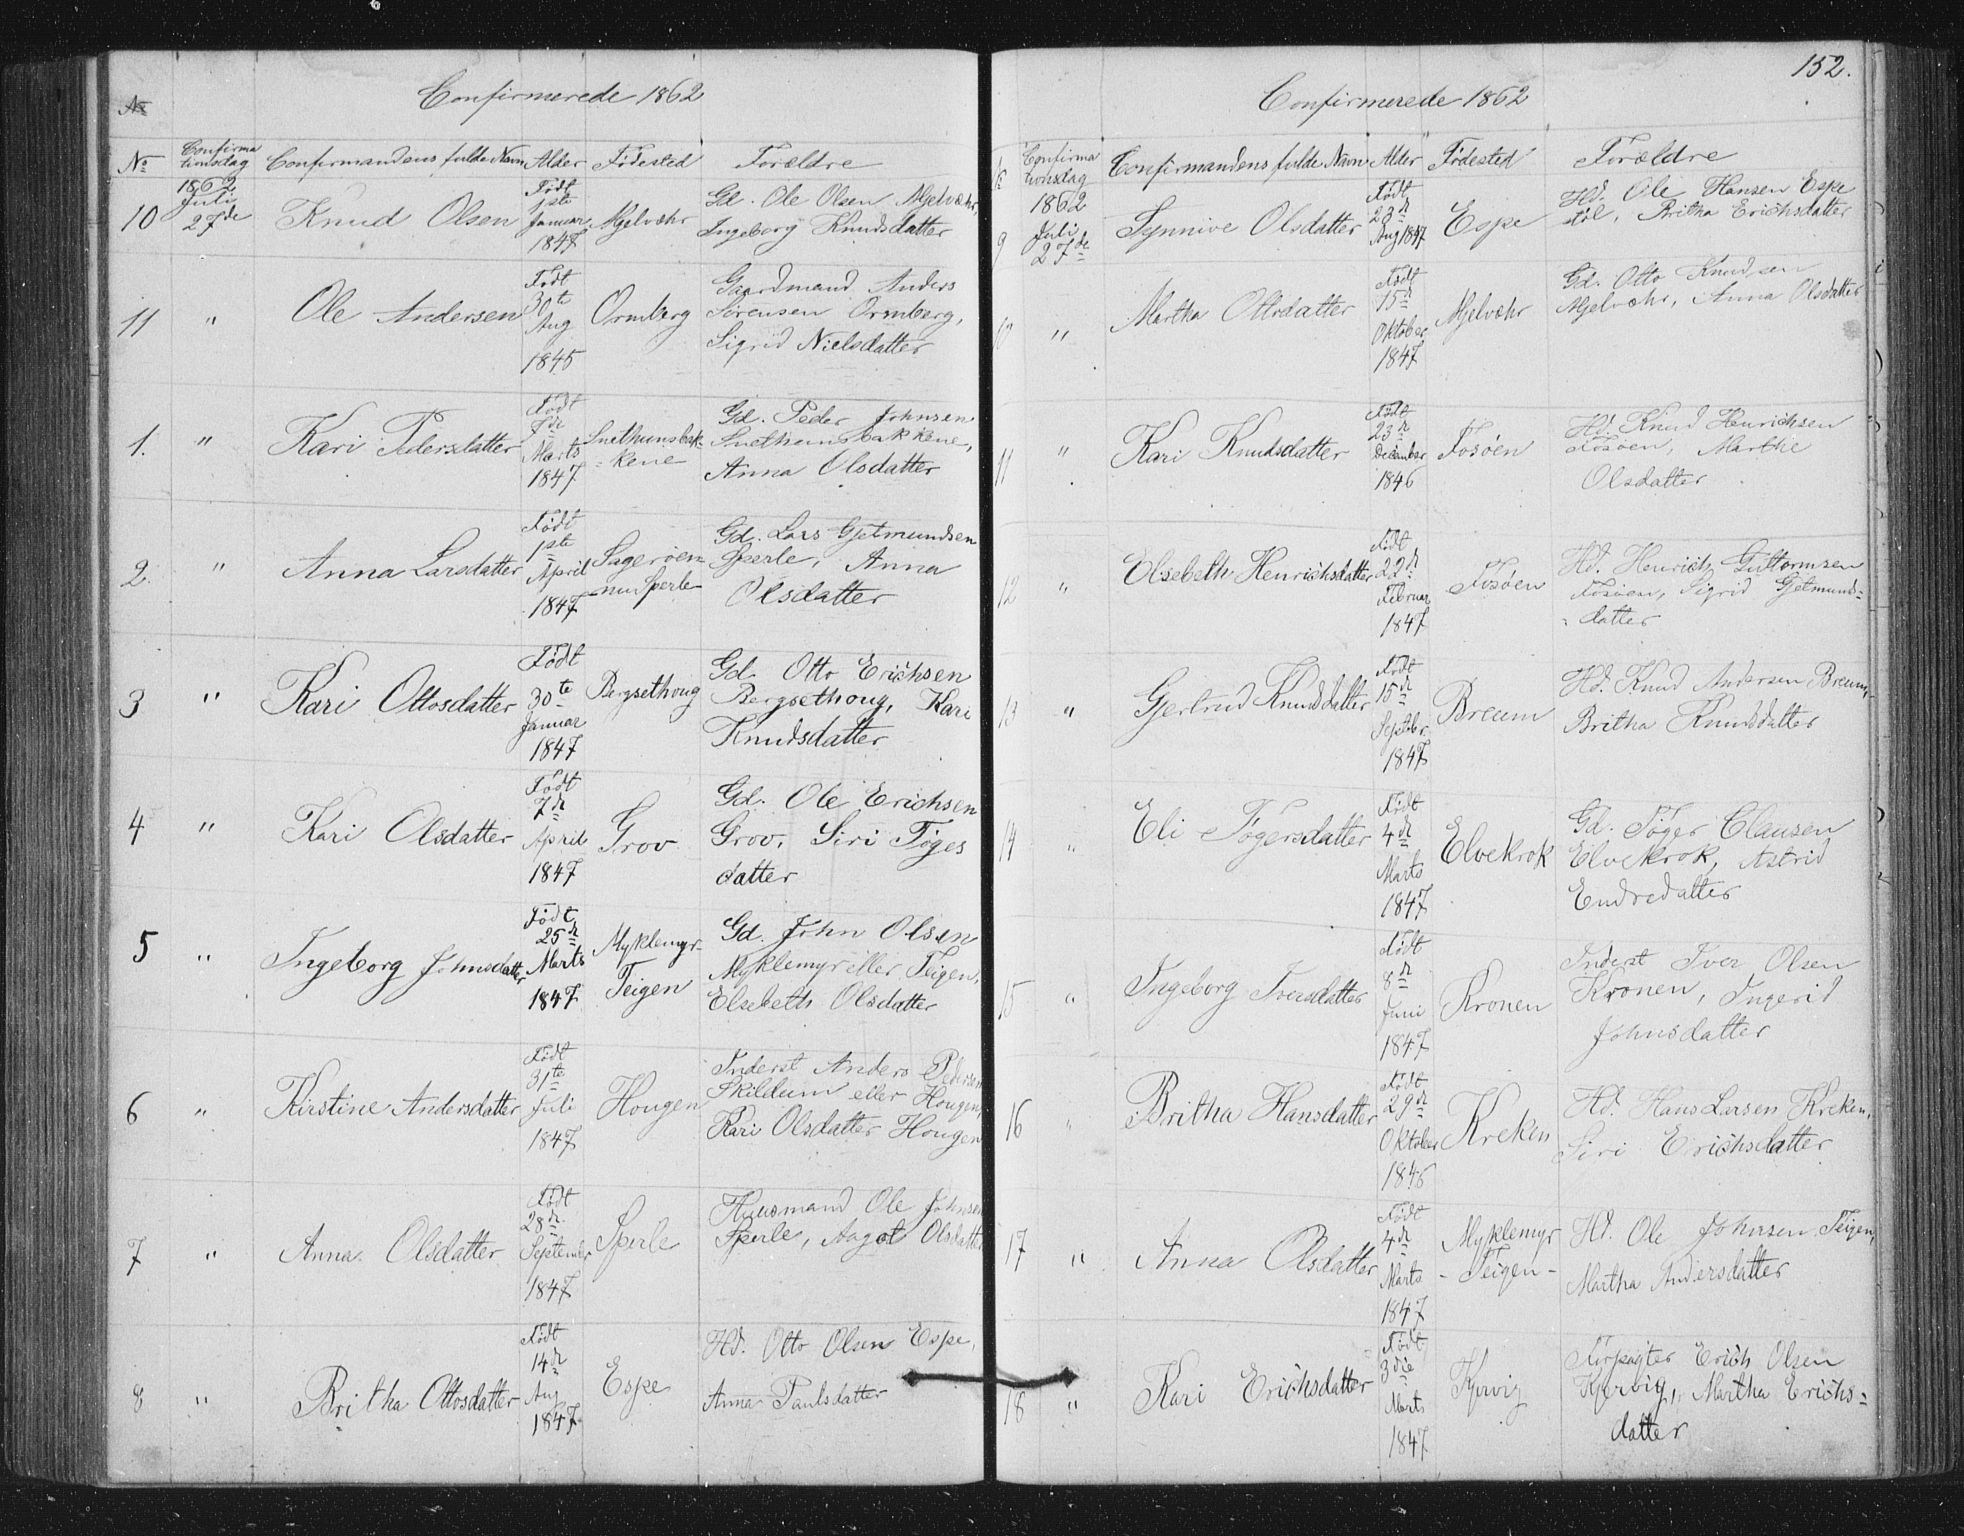 Confirmerede 1862
No
No Confirma tionsdag Confirmandens fulde Navn Alder Fødested Forældre
1862 Født
10 Juli 27de Knud Olsen 1ste Januar 1847 Mjelvæhr Gd. Ole Olsen Mjelvæhr,
Ingeborg Knudsdatter
11 " Ole Andersen Født 30te Aug 1845 Ormberg Gaardmand Anders
Sørensen Ormberg,
Sigrid Nielsdatter
1. " Kari Pedersdatter Født 7de Marts 1847 Snethunsbak-
kene Gd. Peder Johnsen
Snethunsbakkene,
Anna Olsdatter
2. " Anna Larsdatter Født 1ste April 1847 Gd. Lars Gjetmundsen
Sperle, Anna
Olsdatter
3 " Kari Ottosdatter Født 30te Januar 1847 Bergsethoug Gd. Otto Erichsen
Bergsethoug, Kari
Knudsdatter
4 " Kari Olsdatter Født 7de April 1847 Grov Gd. Ole Erichsen
Grov, Siri Tøges
datter
5 " Ingeborg Johnsdatter Født 25de Marts 1847 Myklemyr-
Teigen Gd. John Olsen
Myklemyr eller Teigen,
Elsebeth Olsdatter
6 " Kirstine Andersdatter Født 31te Juli 1847 Hougen Inderst Anders Pedersen
Skildum eller Hougen,
Kari Olsdatter Hougen
7 " Anna Olsdatter Født 28de September 1847 Sperle Huusmand Ole Johnsen
Sperle, Aagot Olsdatter
8 " Britha Ottosdatter Født 14de Aug 1847 Espe Hd. Otto Olsen Espe,
Anna Paulsdatter
152.
Confirmerede 1862
Confirma tionsdag Confirmandens fulde Navn Alder Fødested Forældre
9 1862 Juli 27de Synnive Olsdatter Født 23de Aug 1847 Espe Hd. Ole Hansen Espe
Britha Erichsdatter
10 " Martha Ottosdatter Født 15de Oktober 1847 Mjelvæhr Gd. Otto Knudsen
Mjelvæhr, Anna Olsdatter
11 " Kari Knudsdatter Født 23de December 1846 Fosøen Hd. Knud Henrichsen
Fosøen, Marthe
Olsdatter
12 " Elsebeth Henrichsdatter Født 22de Februar 1847 Fosøen Hd. Henrich Guttormsen
Fosøen, Sigrid Gjetmunds-
datter
13 " Gjertrud Knudsdatter Født 15de Septbr 1847 Breum Hd. Knud Andersen Breum,
Britha Knudsdatter
14 " Eli Tøgersdatter Født 4de Marts 1847 Elvekrok Gd. Tøger Clausen
Elvekrok, Astrid
Endredatter
15 " Ingeborg Iversdatter Født 8de Juni 1847 Kronen Inderst Iver Olsen
Kronen, Ingerid
Johnsdatter
16 " Britha Hansdatter Født 29de Oktober 1846 Kreken Hd. Hans Larsen Kreken,
Siri Erichsdatter
17 " Anna Olsdatter Født 4de Marts 1847 Myklemyr
- Teigen - Hd. Ole Johnsen Teigen,
Martha Andersdatter
18 " Kari Erichsdatter Født 3die Marts 1847 Kjervig Forpagter Erich Olsen
Kjervig, Martha Erichs-
datter